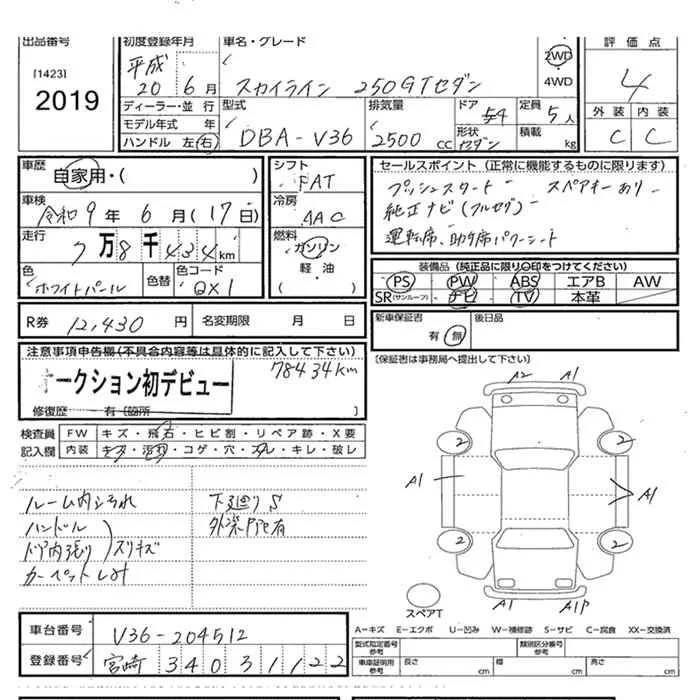 出品番号
[1423]
2019
初度登録年月
平成
20 6月
車名・グレード
スカイライン 250GTセダン
2WD
4WD
評価点
4
外装 内装
C C
ディーラー・並行
モデル年式 年
ハンドル 左 右
型式
DBA-V36
排気量
2500 CC
ドア 54
形状 セダン
定員 5人
積載 kg
車歴
自家用・( )
車検
令和9年6月(17日)
走行
7万8千434km
色
ホワイトパール
色替
色コード
QX1
シフト
FAT
冷房
AAC
燃料
ガソリン
軽油
( )
セールスポイント(正常に機能するものに限ります)
プッシュスタート スペアキーあり
純正ナビ(フルセグ)
運転席、助手席パワーシート
装備品(純正品に限り〇印をつけてください)
PS PW ABS エアB AW
SR(サンルーフ) ナビ TV 本革
R券 12,430円
名変期限 月 日
新車保証書
有 無
後日品
(保証書は事務局へ提出して下さい)
注意事項申告欄(不具合内容等は具体的に記入して下さい)
オークション初デビュー
78434km
修復歴 有(箇所 )
検査員
記入欄
FW キズ・飛石・ヒビ割・リペア跡・X要
内装 キズ・汚れ・コゲ・穴・スレ・キレ・破レ
ルーム内ヨゴれ
ハンドル
ドア内張り
スリキズ
カーペットしみ
下廻りS
外装P跡有
A2 A1
2 2
A1 A1
2 2
A1 A1P
スペアT
A−キズ E−エクボ U−凹み W−補修跡 S−サビ C−腐食 XX−交換済
車台番号 V36-204512
登録番号 宮崎 340 ろ 1122
型式指定番号 参考
類別区分番号 参考
車庫証明用 参考
長さ cm
幅 cm
高さ cm